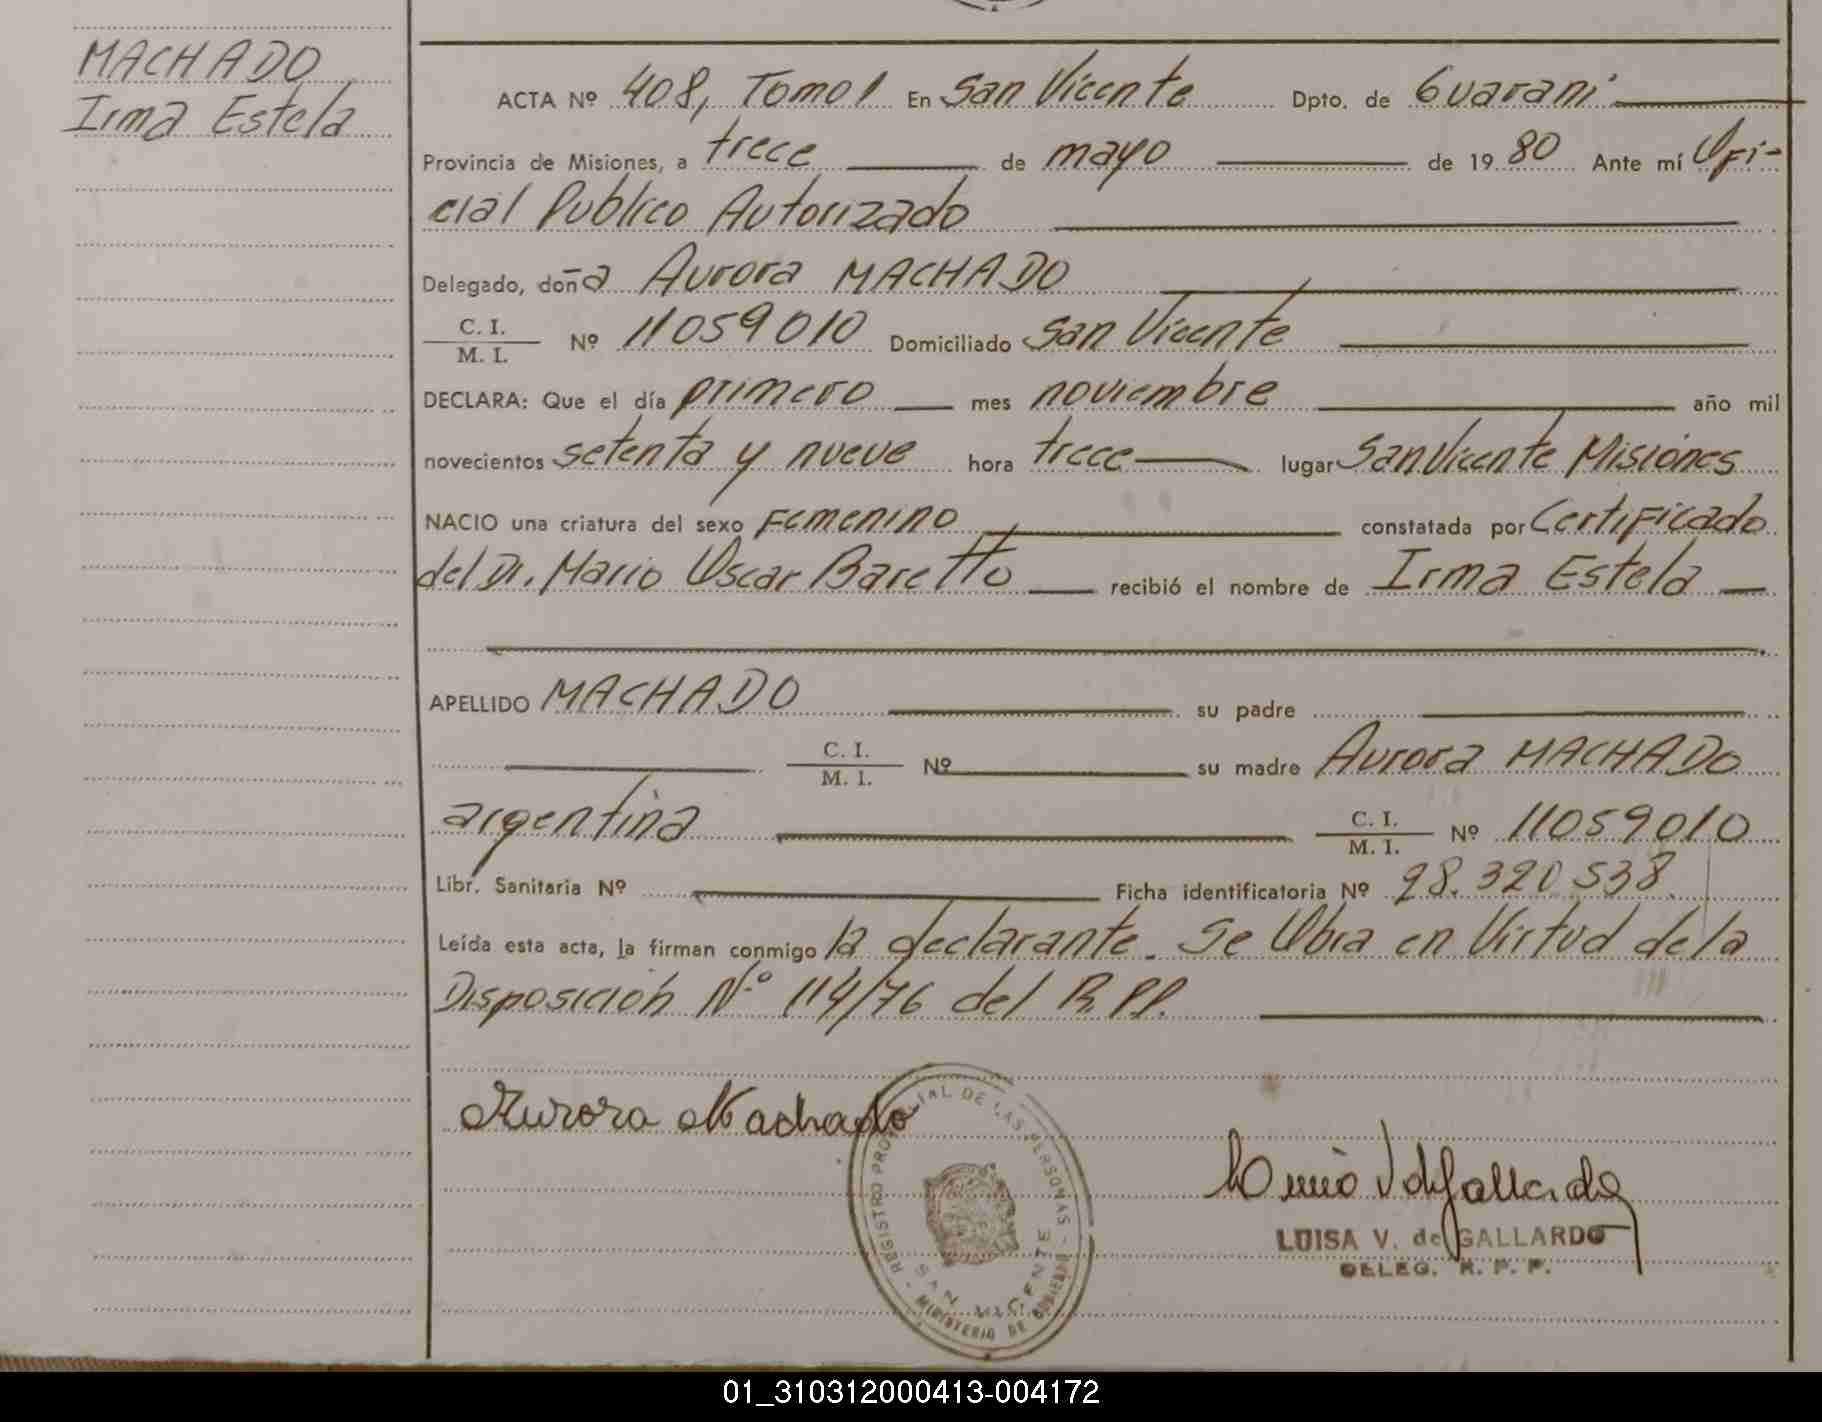 MACHADO
Irma Estela
ACTA Nº 408, Tomo I En San Vicente Dpto. de Guaraní
Provincia de Misiones, a trece de mayo de 19 80 Ante mí Ofi-
cial Publico Autorizado
Delegado, doña Aurora MACHADO
C. I.
M. I. Nº 11059010 Domiciliado San Vicente
DECLARA: Que el día primero mes noviembre año mil
novecientos setenta y nueve hora trece lugar San Vicente Misiones
NACIO una criatura del sexo Femenino constatada por Certificado
del Dr. Mario Oscar Baretto recibió el nombre de Irma Estela
APELLIDO MACHADO su padre
C. I.
M. I. Nº su madre Aurora MACHADO
argentina C. I.
M. I. Nº 11059010
Libr. Sanitaria Nº Ficha identificatoria Nº 28.320.538
Leída esta acta, la firman conmigo la declarante. Se Obra en Virtud de la
Disposición Nº 114/76 del R.P.P.
Aurora Machado
REGISTRO PROVINCIAL DE LAS PERSONAS - MINISTERIO DE GOBIERNO -
SAN VICENTE
LUISA V. de GALLARDO
DELEG. R. P. P.
01_310312000413-004172